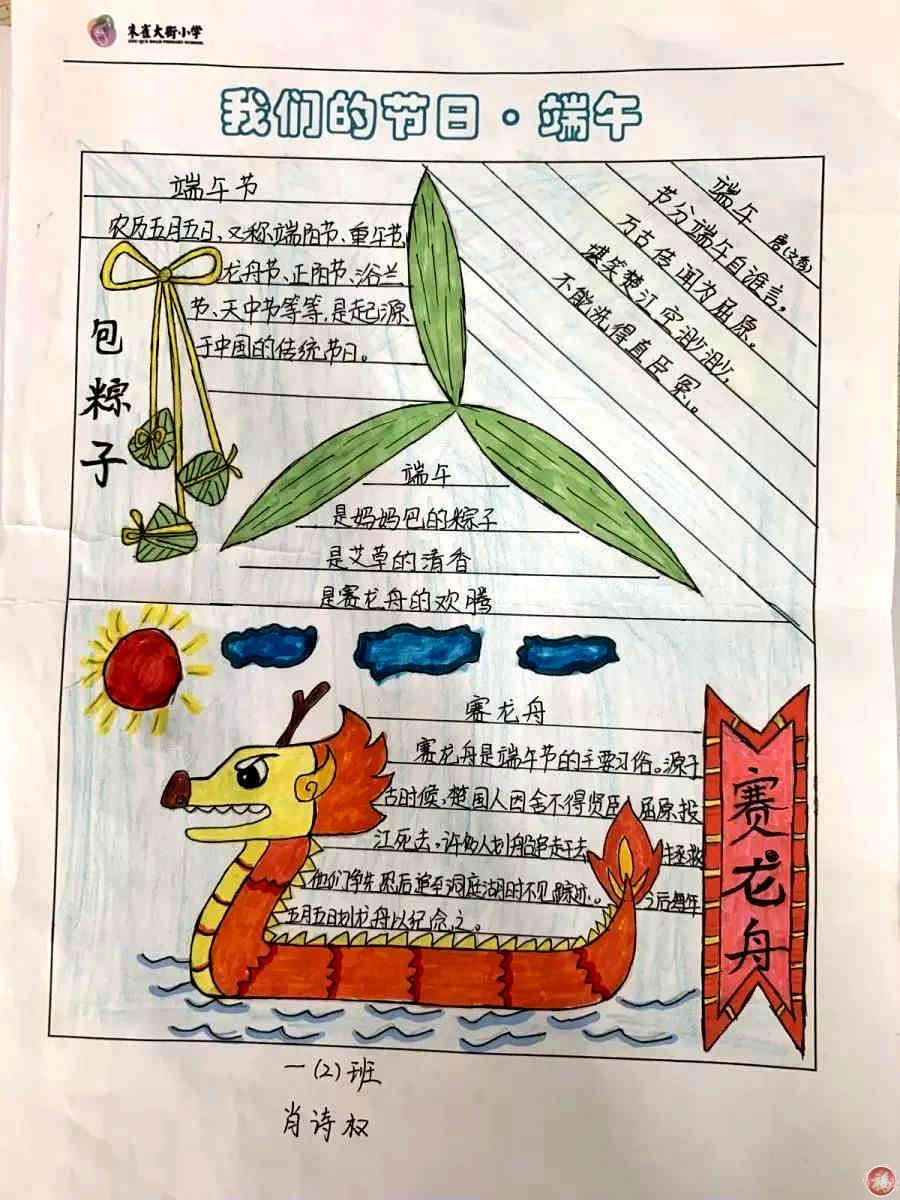 朱雀大街小学
我们的节日·端午
端午节
农历五月五日、又称端阳节、重午节、
龙舟节、正阳节、浴兰
节、天中节等等,是起源
于中国的传统节日。
包粽子
端午
唐(文秀)
节分端午自谁言,
万古传闻为屈原。
堪笑楚江空渺渺,
不能洗得直臣冤。
端午
是妈妈包的粽子
是艾草的清香
是赛龙舟的欢腾
赛龙舟
赛龙舟是端午节的主要习俗。源于
古时候,楚国人因舍不得贤臣屈原投
江死去。许多人划船追赶去拯救
他们争先恐后追至洞庭湖时不见踪迹。之后每年
五月五日划龙舟以纪念之。
赛龙舟
一(2)班
肖诗权
福